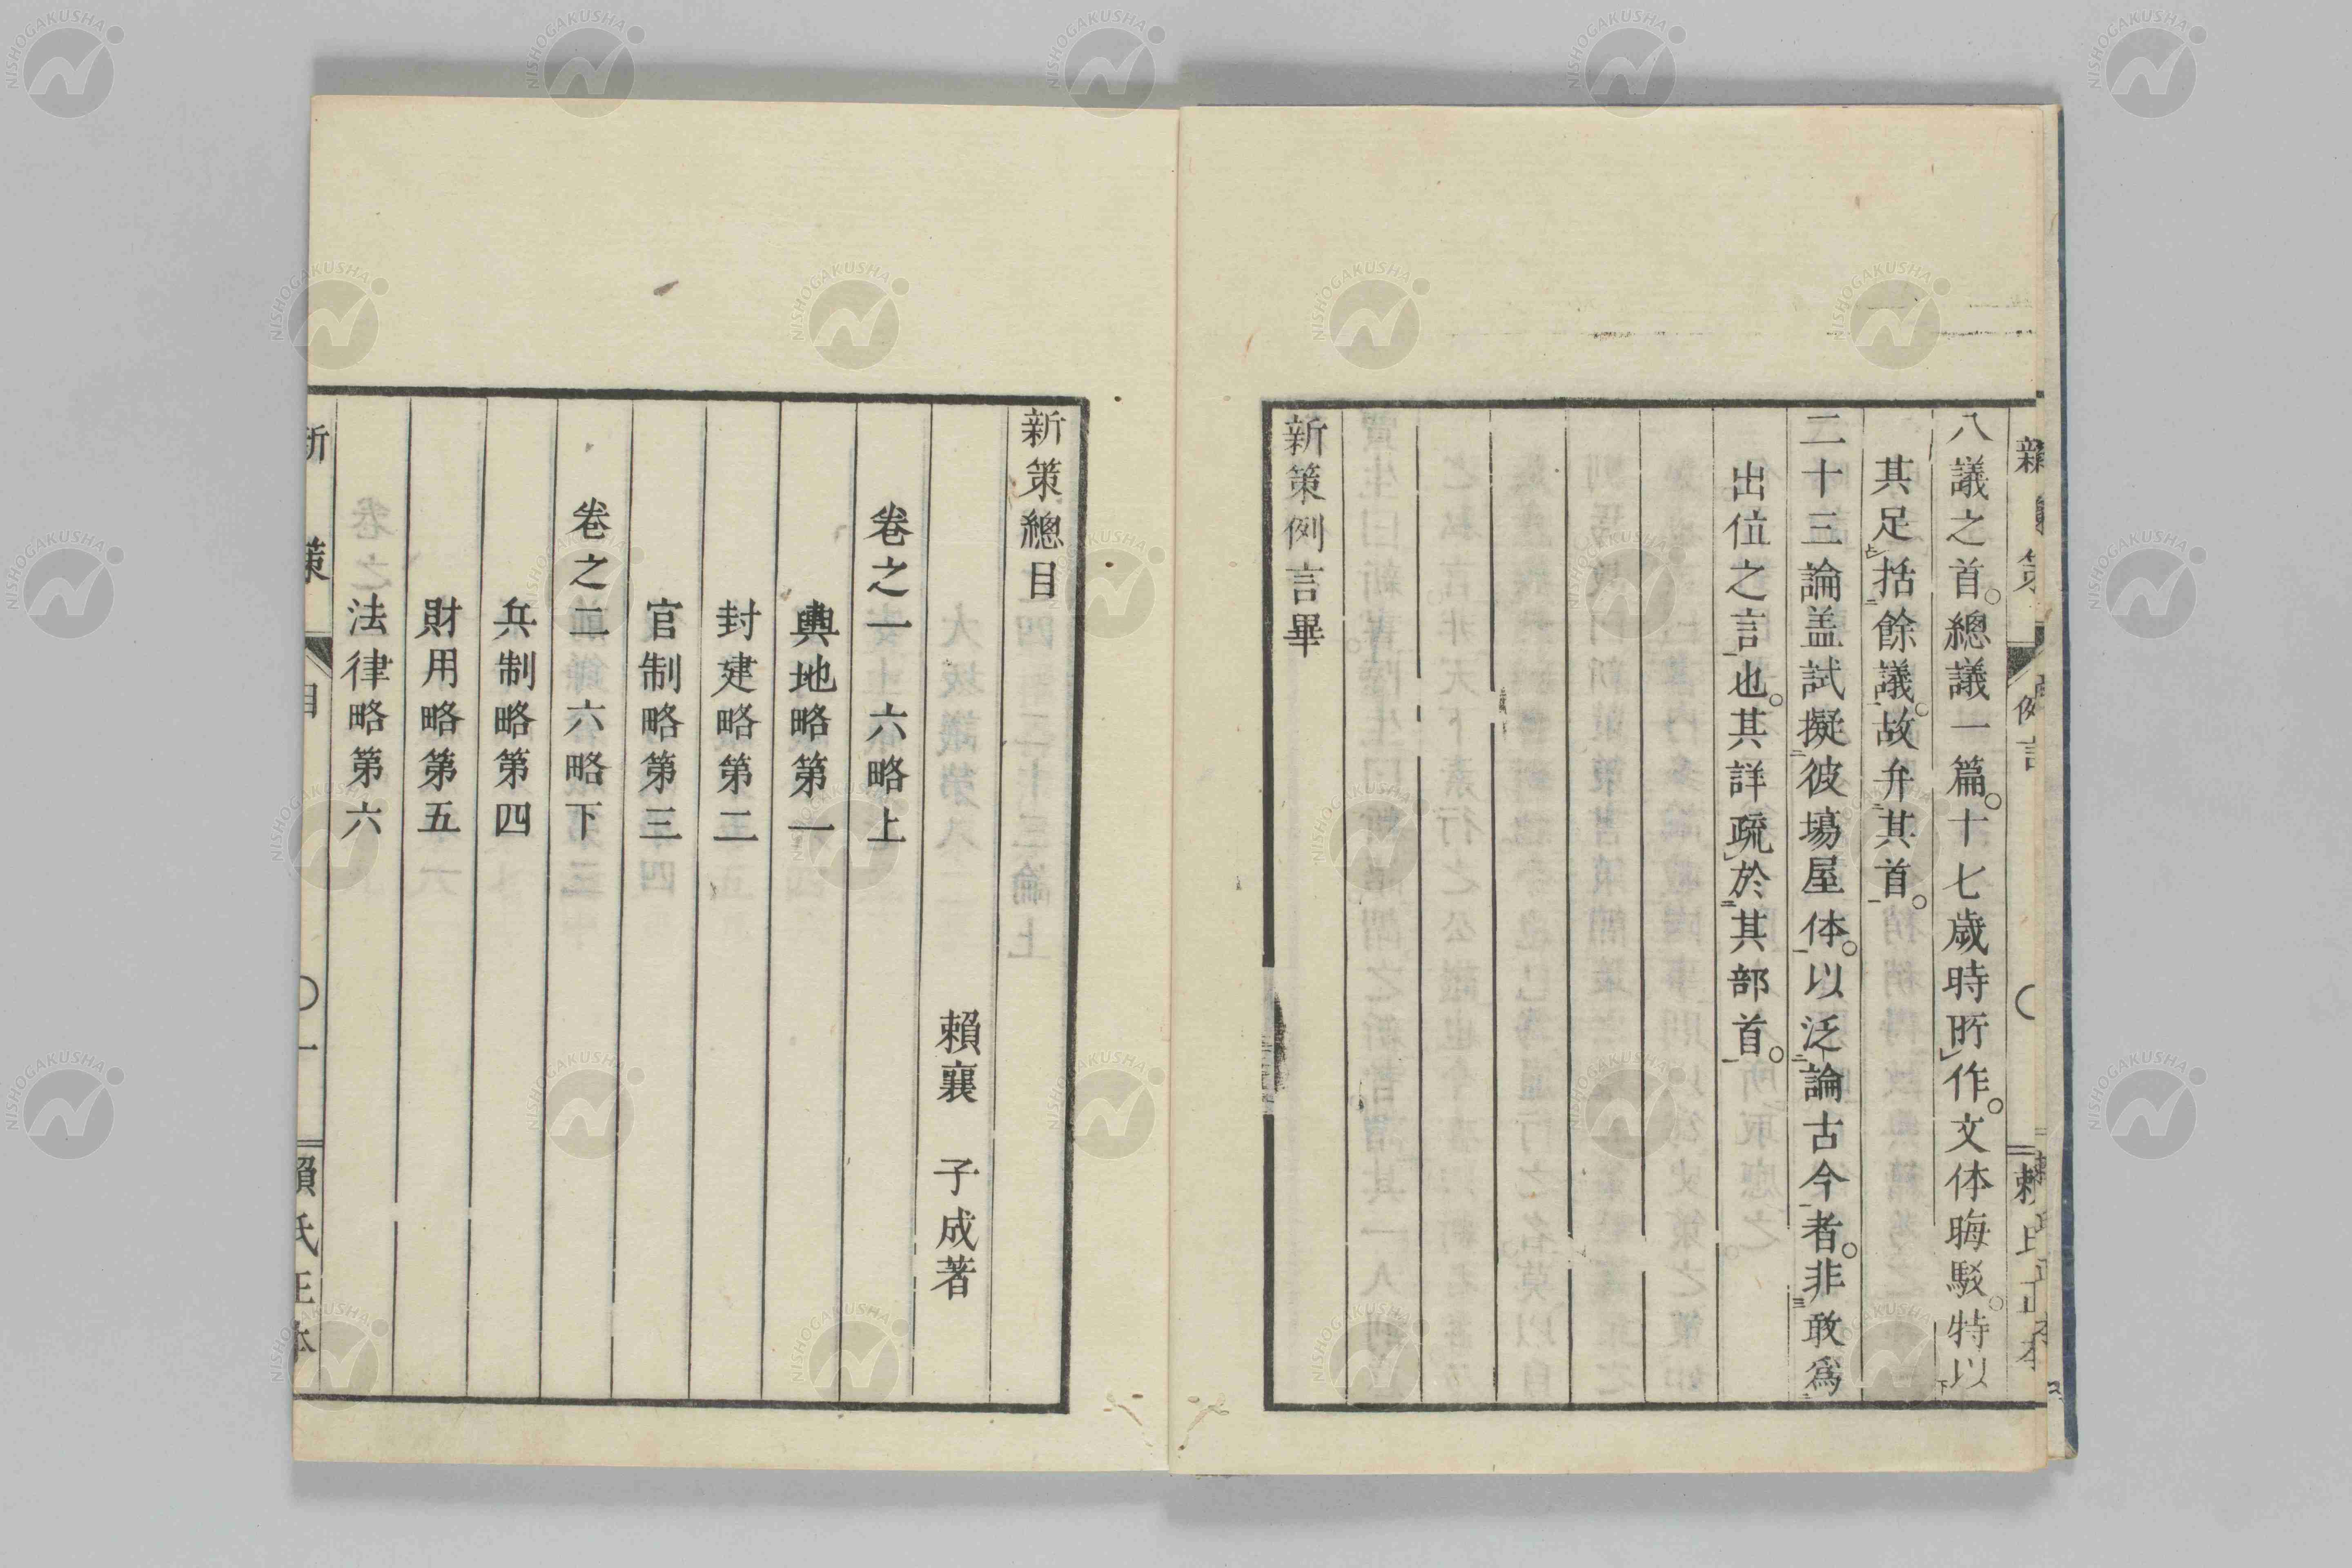 八議之首。總議一篇。十七歳時所作。文体晦駁。特以
其足括餘議。故弁其首。
二十三論盖試擬彼場屋体。以泛論古今者。非敢爲
出位之言也。其詳疏於其部首。
新策例言畢
新策總目
賴襄 子成著
卷之一 六略上
輿地略第一
封建略第二
官制略第三
卷之二 六略下
兵制略第四
財用略第五
法律略第六
新策 目 〇一 賴氏正本
NISHOGAKUSHA